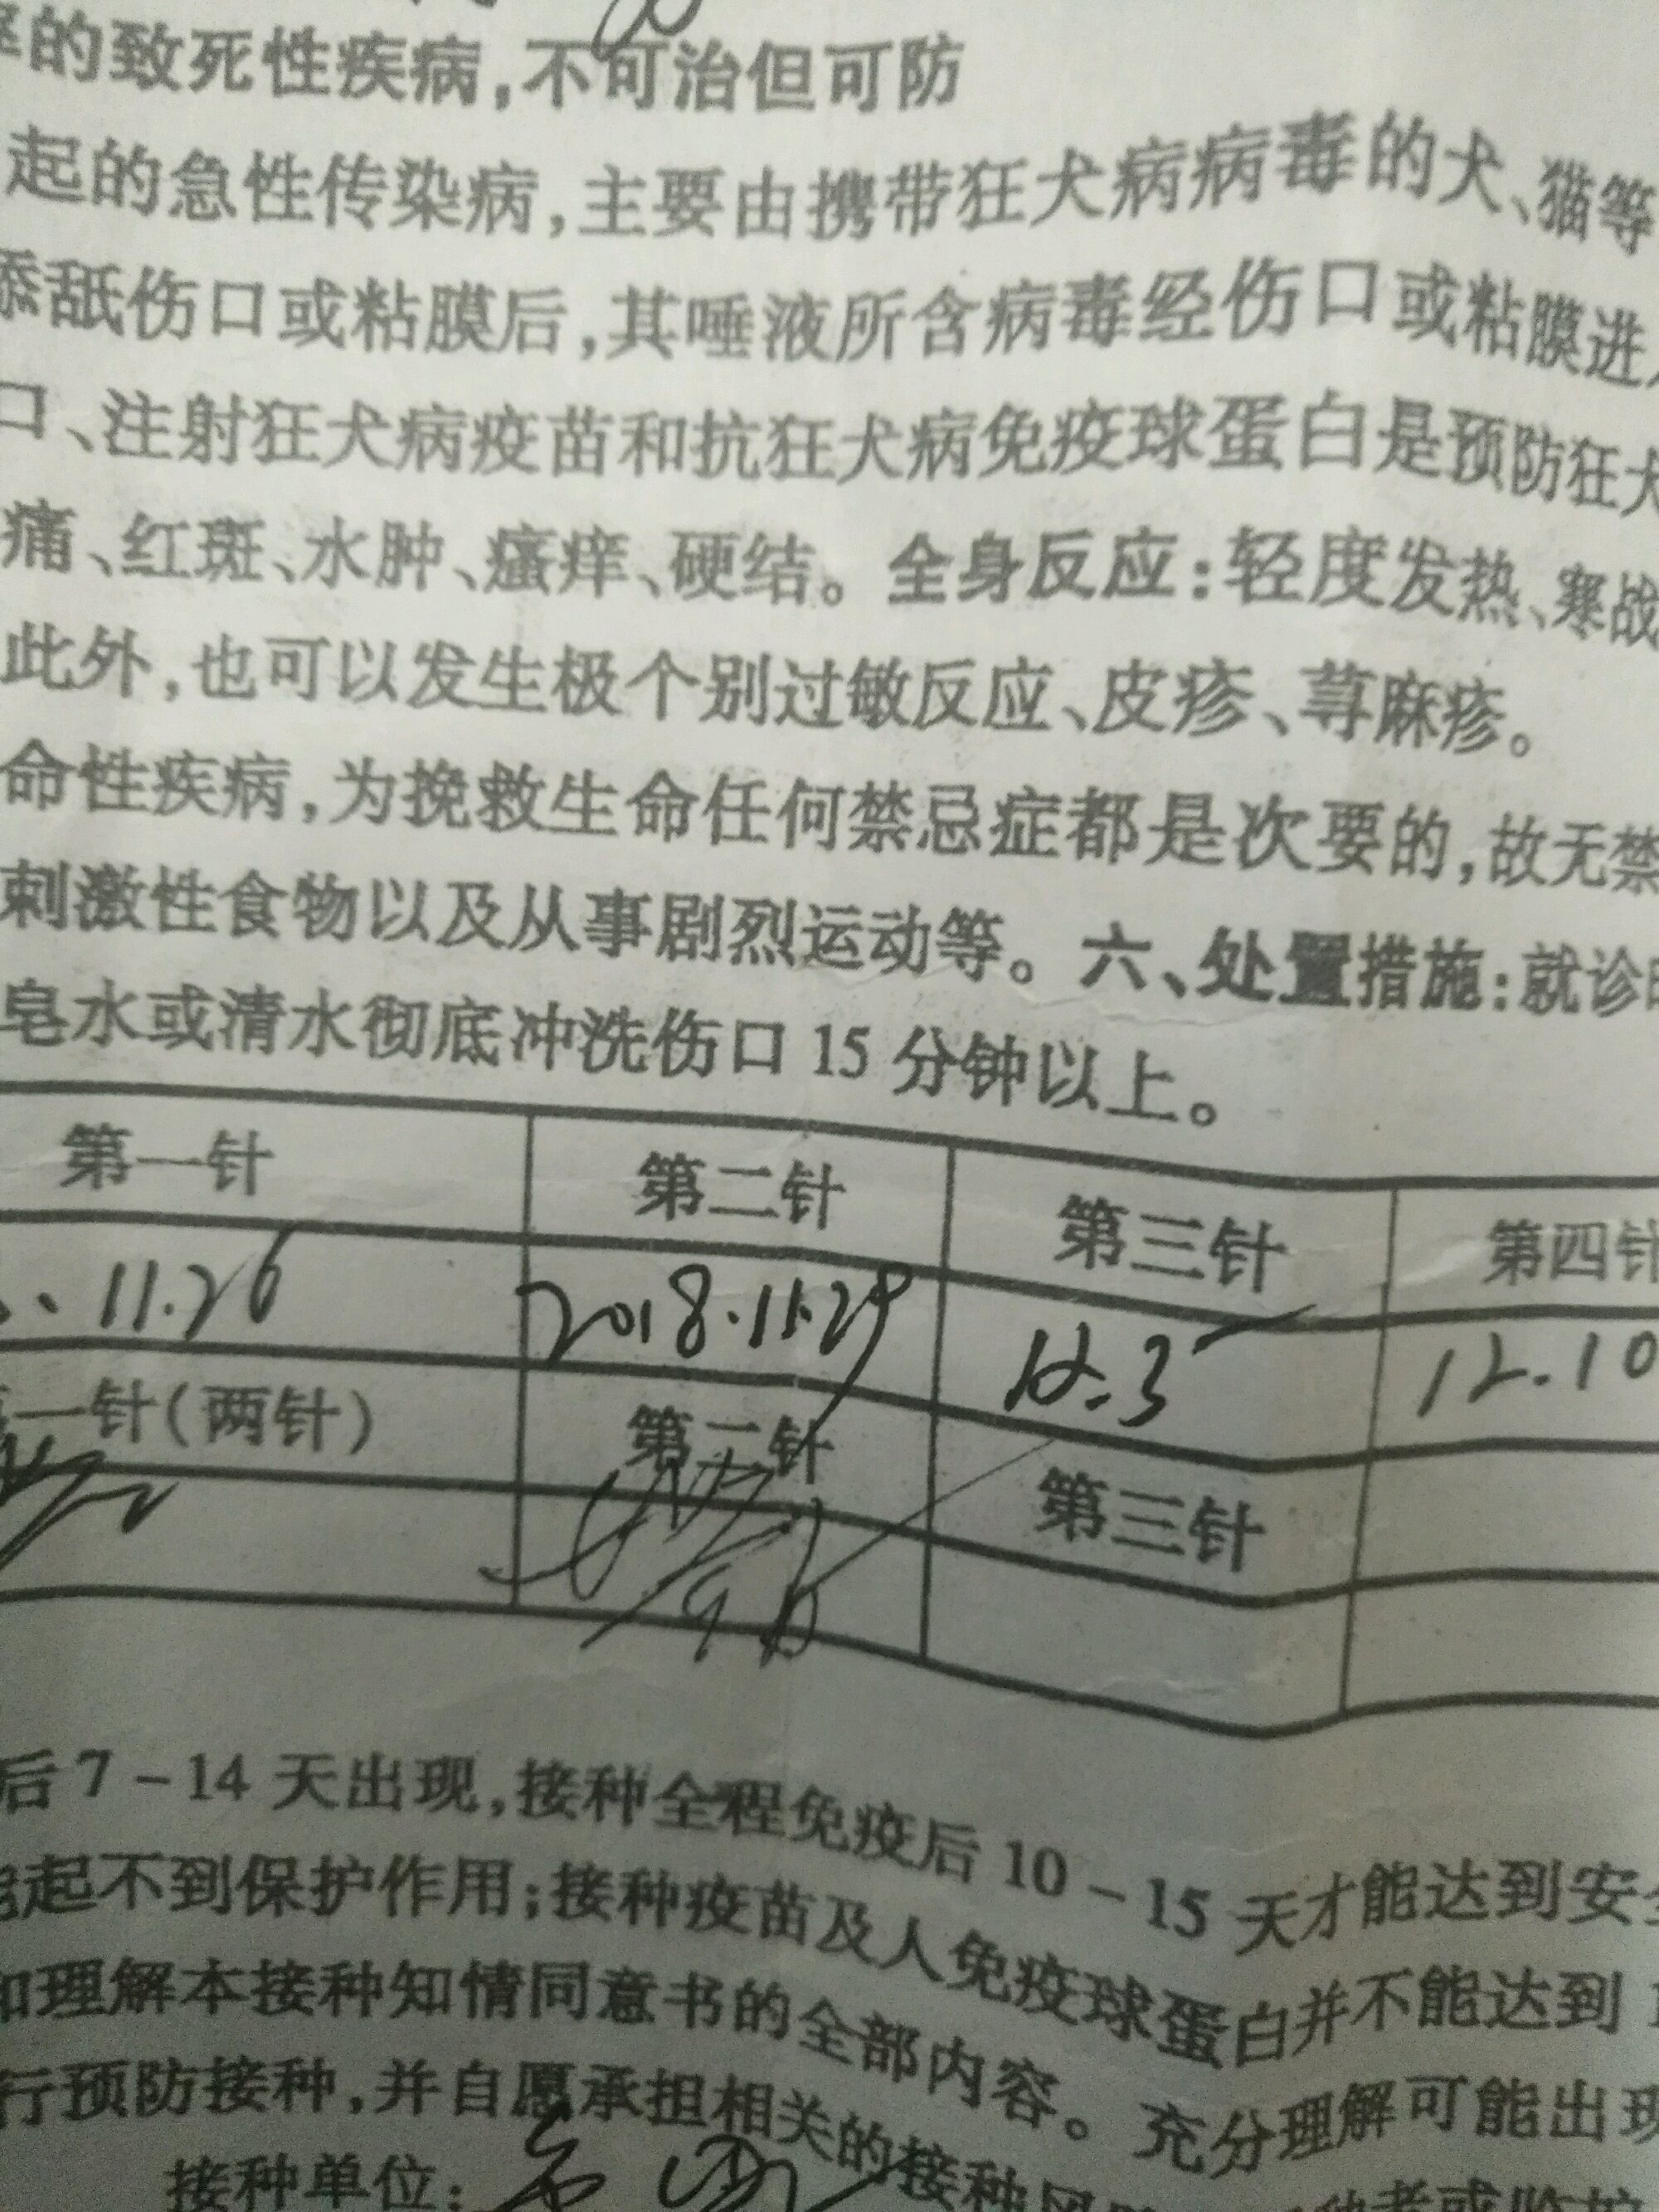 的致死性疾病,不可治但可防
起的急性传染病,主要由携带狂犬病病毒的犬、猫等
舐伤口或粘膜后,其唾液所含病毒经伤口或粘膜进
口、注射狂犬病疫苗和抗狂犬病免疫球蛋白是预防狂犬
痛、红斑、水肿、瘙痒、硬结。全身反应:轻度发热、寒战
此外,也可以发生极个别过敏反应、皮疹、荨麻疹。
命性疾病,为挽救生命任何禁忌症都是次要的,故无禁
刺激性食物以及从事剧烈运动等。六、处置措施:就诊
皂水或清水彻底冲洗伤口 15 分钟以上。
第一针 第二针 第三针 第四针
11.26 2018.11.29 12.3 12.10
一针(两针) 第二针 第三针
后 7-14 天出现,接种全程免疫后 10-15 天才能达到安
起不到保护作用;接种疫苗及人免疫球蛋白并不能达到
理解本接种知情同意书的全部内容。充分理解可能出现
行预防接种,并自愿承担相关的接种风
接种单位: